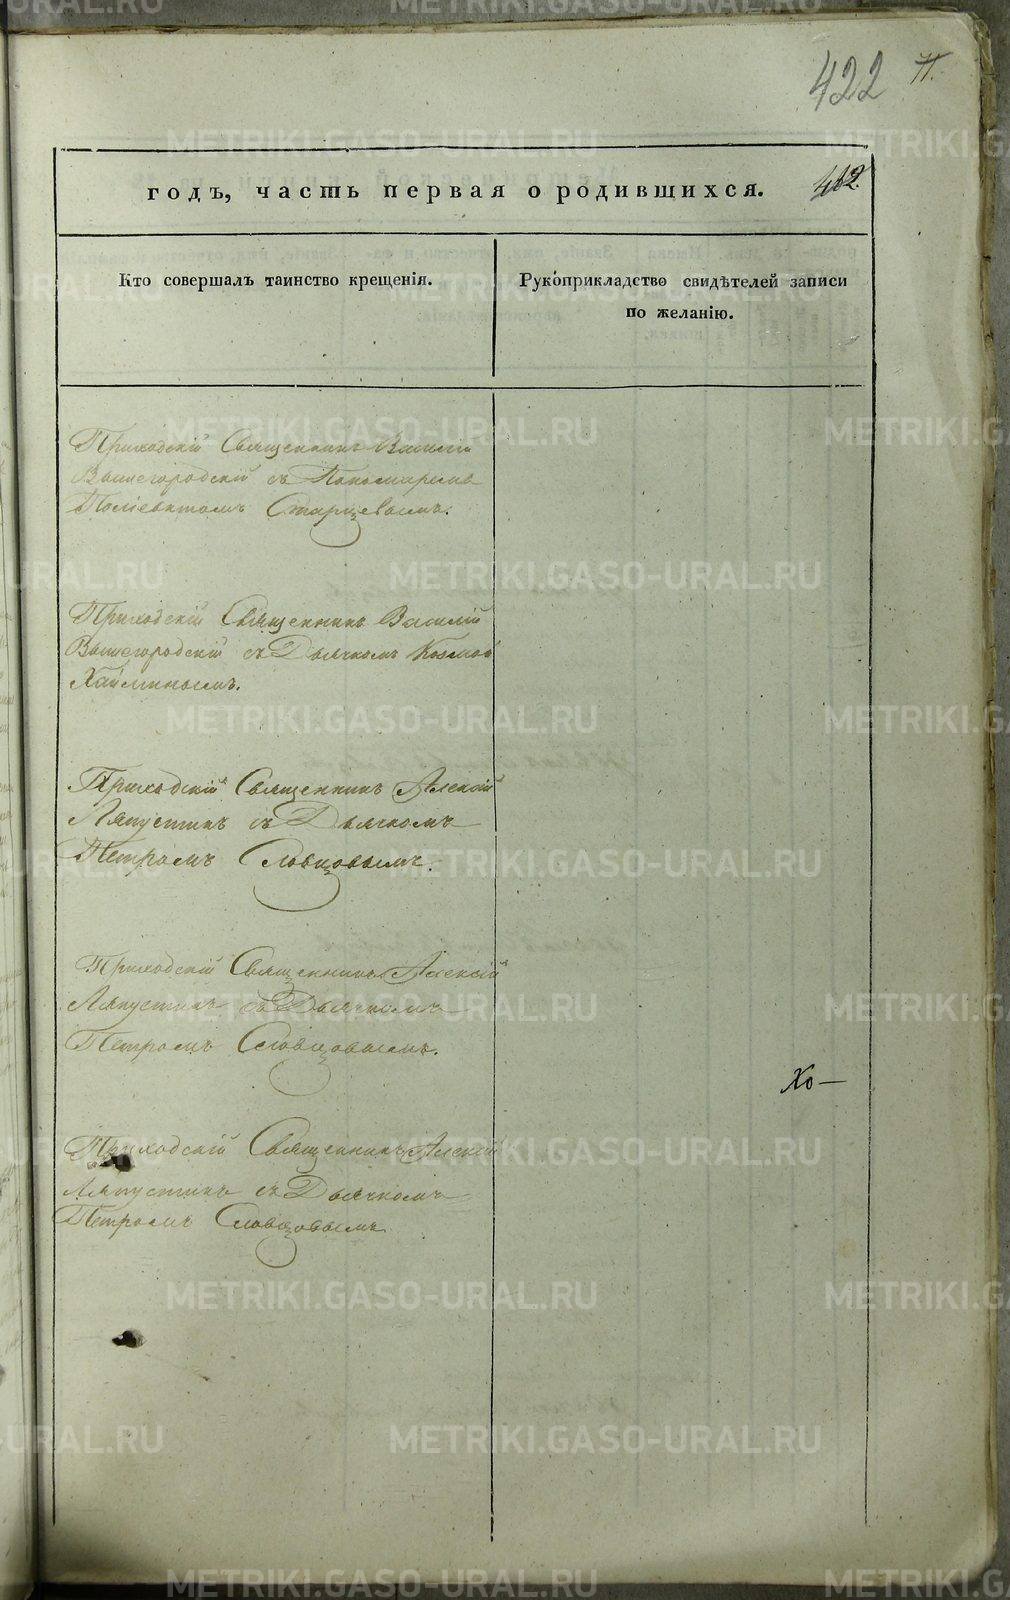 422 71.
годъ, часть первая о родившихся. 462.
Кто совершалъ таинство крещенія.
Рукоприкладство свидѣтелей записи
по желанію.
Приходскій Священникъ Василій
Вышегородскій съ Пономаремъ
Поліевктомъ Старцевымъ.
Приходскій Священникъ Василій
Вышегородскій съ Дьячкомъ Козмой
Хайминымъ.
Приходскій Священникъ Алексій
Ляпустинъ съ Дьячкомъ
Петромъ Словцовымъ.
Приходскій Священникъ Алексій
Ляпустинъ съ Дьячкомъ
Петромъ Словцовымъ.
Хо—
Приходскій Священникъ Алексій
Ляпустинъ съ Дьячкомъ
Петромъ Словцовымъ.
METRIKI.GASO-URAL.RU